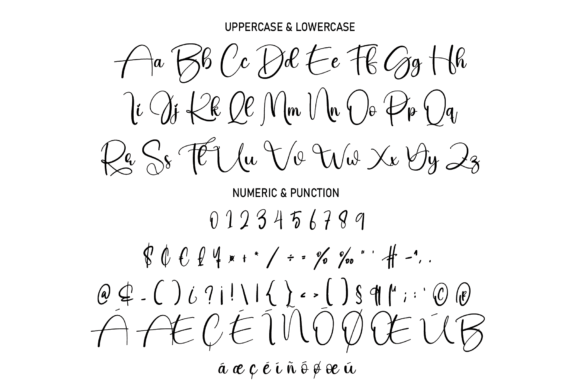 UPPERCASE & LOWERCASE
Aa Bb Cc Dd Ee Ff Gg Hh
Ii Jj Kk Ll Mm Nn Oo Pp Qq
Rr Ss Tt Uu Vv Ww Xx Yy Zz
NUMERIC & PUNCTION
0 1 2 3 4 5 6 7 8 9
$ ¢ € £ ¥ × + * / ÷ = % ‰ " ' # - ,
@ & - ( ) ¿ ? ¡ ! \ | { } < > [ ] § ¶ ; : © ®
Á Æ Ç É Í Ñ Ó Ø Œ Ú ß
á æ ç é í ñ ó ø œ ú